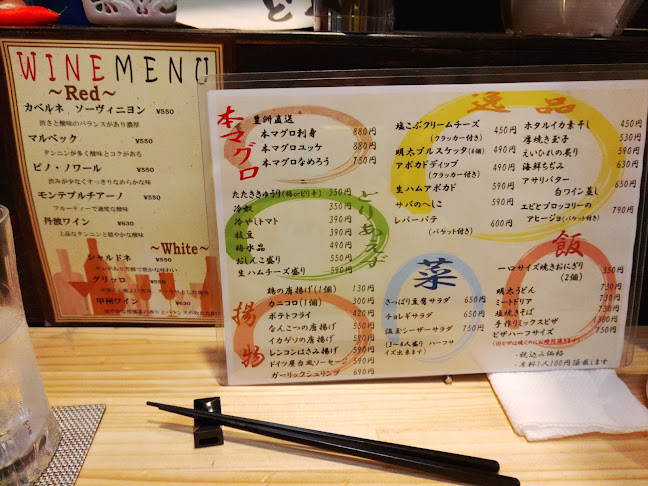 WINE MENU
~Red~
カベルネ ソーヴィニヨン ¥550
渋さと酸味のバランスがあり濃厚
マルベック ¥550
タンニンが多く酸味とコクがある
ピノ・ノワール ¥550
渋みが少なくすっきりなめらかな味
モンテプルチアーノ ¥550
フルーティーで適度な酸味
丹波ワイン ¥630
上品なタンニンと穏やかな酸味
~White~
シャルドネ ¥550
グリッロ ¥550
甲州ワイン ¥630
本マグロ
豊洲直送
本マグロ刺身 880円
本マグロユッケ 880円
本マグロなめろう 750円
とりあえず
たたききゅうり(梅orピリ辛) 350円
冷奴 350円
冷やしトマト 390円
枝豆 390円
梅水晶 490円
おしんこ盛り 550円
生ハムチーズ盛り 590円
揚物
鶏の唐揚げ(1個) 130円
カニコロ(1個) 300円
ポテトフライ 420円
なんこつの唐揚げ 490円
イカゲソの唐揚げ 490円
レンコンはさみ揚げ 490円
ドイツ屋台風ソーセージ 590円
ガーリックシュリンプ 690円
逸品
塩こぶクリームチーズ 450円
(クラッカー付き)
明太ブルスケッタ(4個) 490円
アボカドディップ 490円
(クラッカー付き)
生ハムアボカド 590円
サバのへしこ 590円
レバーパテ 600円
(バケット付き)
ホタルイカ素干し 450円
厚焼き玉子 530円
えいひれの炙り 590円
海鮮ちぢみ 630円
アサリバター
白ワイン蒸し 630円
エビとブロッコリーの
アヒージョ(バケット付き) 790円
菜
さっぱり豆腐サラダ 650円
チョレギサラダ 650円
温玉シーザーサラダ 750円
(3~4人盛り ハーフサイズ出来ます)
飯
一口サイズ焼おにぎり 350円
(2個)
明太うどん 730円
ミートドリア 730円
塩焼きそば 730円
手作りミックスピザ 1300円
ピザハーフサイズ 750円
・税込み価格
・席料1人100円頂戴します